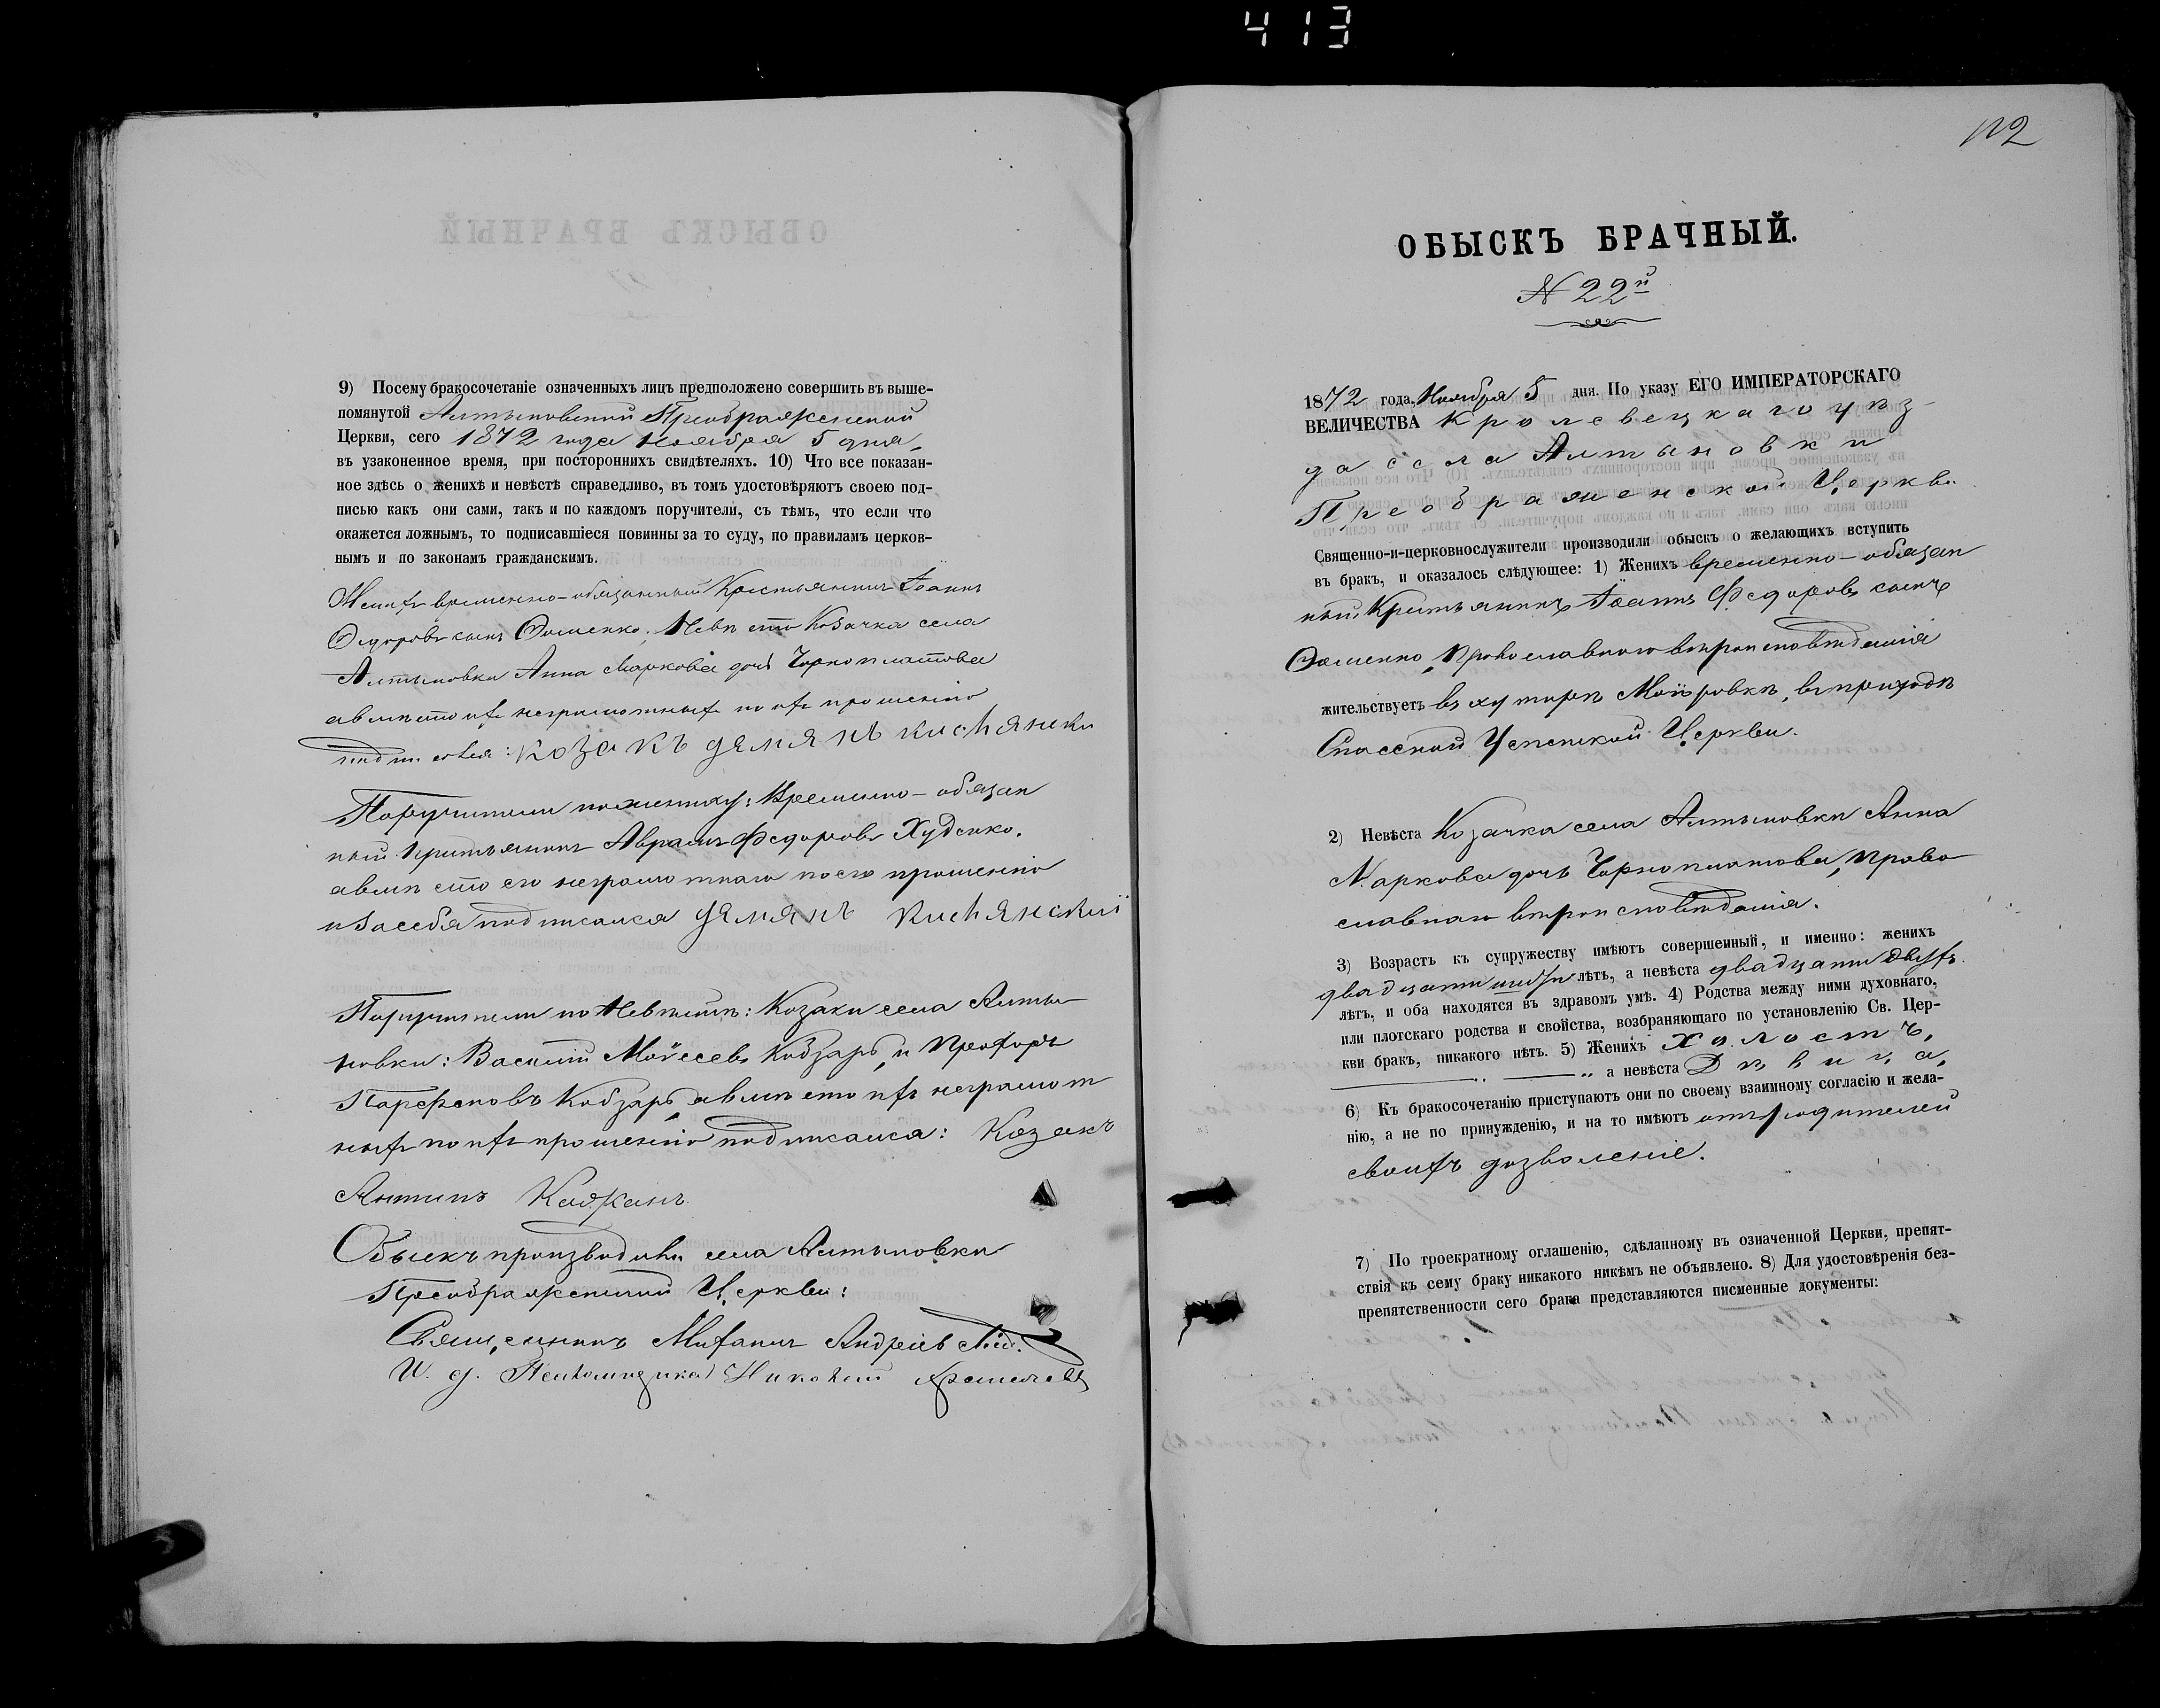 413
9) Посему бракосочетаніе означенныхъ лицъ предположено совершить въ выше-
помянутой Алтыновской Преображенской
Церкви, сего 1872 года Ноября 5 дня,
въ узаконенное время, при постороннихъ свидѣтеляхъ. 10) Что все показан-
ное здѣсь о женихѣ и невѣстѣ справедливо, въ томъ удостовѣряютъ своею под-
писью какъ они сами, такъ и по каждомъ поручители, съ тѣмъ, что если что
окажется ложнымъ, то подписавшіеся повинны за то суду, по правиламъ церков-
нымъ и по законамъ гражданскимъ.
Женихъ временно-обязанный Крестьянинъ Іоаннъ
Федоровъ сынъ Фоменко, Невѣста Козачка села
Алтыновки Анна Маркова дочь Чорноплатова
а вмѣсто ихъ неграмотныхъ по ихъ прошенію
подписался: козакъ демянъ
Поручители по жениху: Временно-обязан
ный Кристьянинъ Аврамъ Федоровъ Худенко.
а вмѣсто его неграмотнаго по его прошенію
и за себя подписался демянъ
Поручители по Невѣстѣ: Козаки села Алты-
новки: Василій Моѵсеевъ Кобзарь, и Прохоръ
Парфеновъ Кобзарь, а вмѣсто ихъ неграмот
ныхъ по ихъ прошенію подписался: Козакъ
Антипъ Каджанъ
Обыскъ производили села Алтыновки
Преображенской Церкви:
Священникъ Михаилъ Андреевъ
И. д. Псаломщика Николай
112
ОБЫСКЪ БРАЧНЫЙ.
N 22й
1872 года, Ноября 5 дня. По указу ЕГО ИМПЕРАТОРСКАГО
ВЕЛИЧЕСТВА Кролевецкаго уѣз-
да села Алтыновки
Преображенской Церкви
Священно-и-церковнослужители производили обыскъ о желающихъ вступить
въ бракъ, и оказалось слѣдующее: 1) Женихъ временно-обязан
ный Кристьянинъ Іоаннъ Федоровъ сынъ
Фоменко, Православнаго вѣроисповѣданія
жительствуетъ въ хуторѣ Моѵровкѣ, въ приходѣ
Спасской Успенской Церкви.
2) Невѣста Козачка села Алтыновки Анна
Маркова дочь Чорноплатова, Право
славнаго вѣроисповѣданія.
3) Возрастъ къ супружеству имѣютъ совершенный, и именно: женихъ
двадцати лѣтъ, а невѣста двадцати двухъ
лѣтъ, и оба находятся въ здравомъ умѣ. 4) Родства между ними духовнаго,
или плотскаго родства и свойства, возбраняющаго по установленію Св. Цер-
кви бракъ, никакого нѣтъ. 5) Женихъ Холостъ,
а невѣста Дѣвица,
6) Къ бракосочетанію приступаютъ они по своему взаимному согласію и жела-
нію, а не по принужденію, и на то имѣютъ отъ родителей
своихъ дозволеніе.
7) По троекратному оглашенію, сдѣланному въ означенной Церкви, препят-
ствія къ сему браку никакого никѣмъ не объявлено. 8) Для удостовѣренія без-
препятственности сего брака представляются писменные документы: